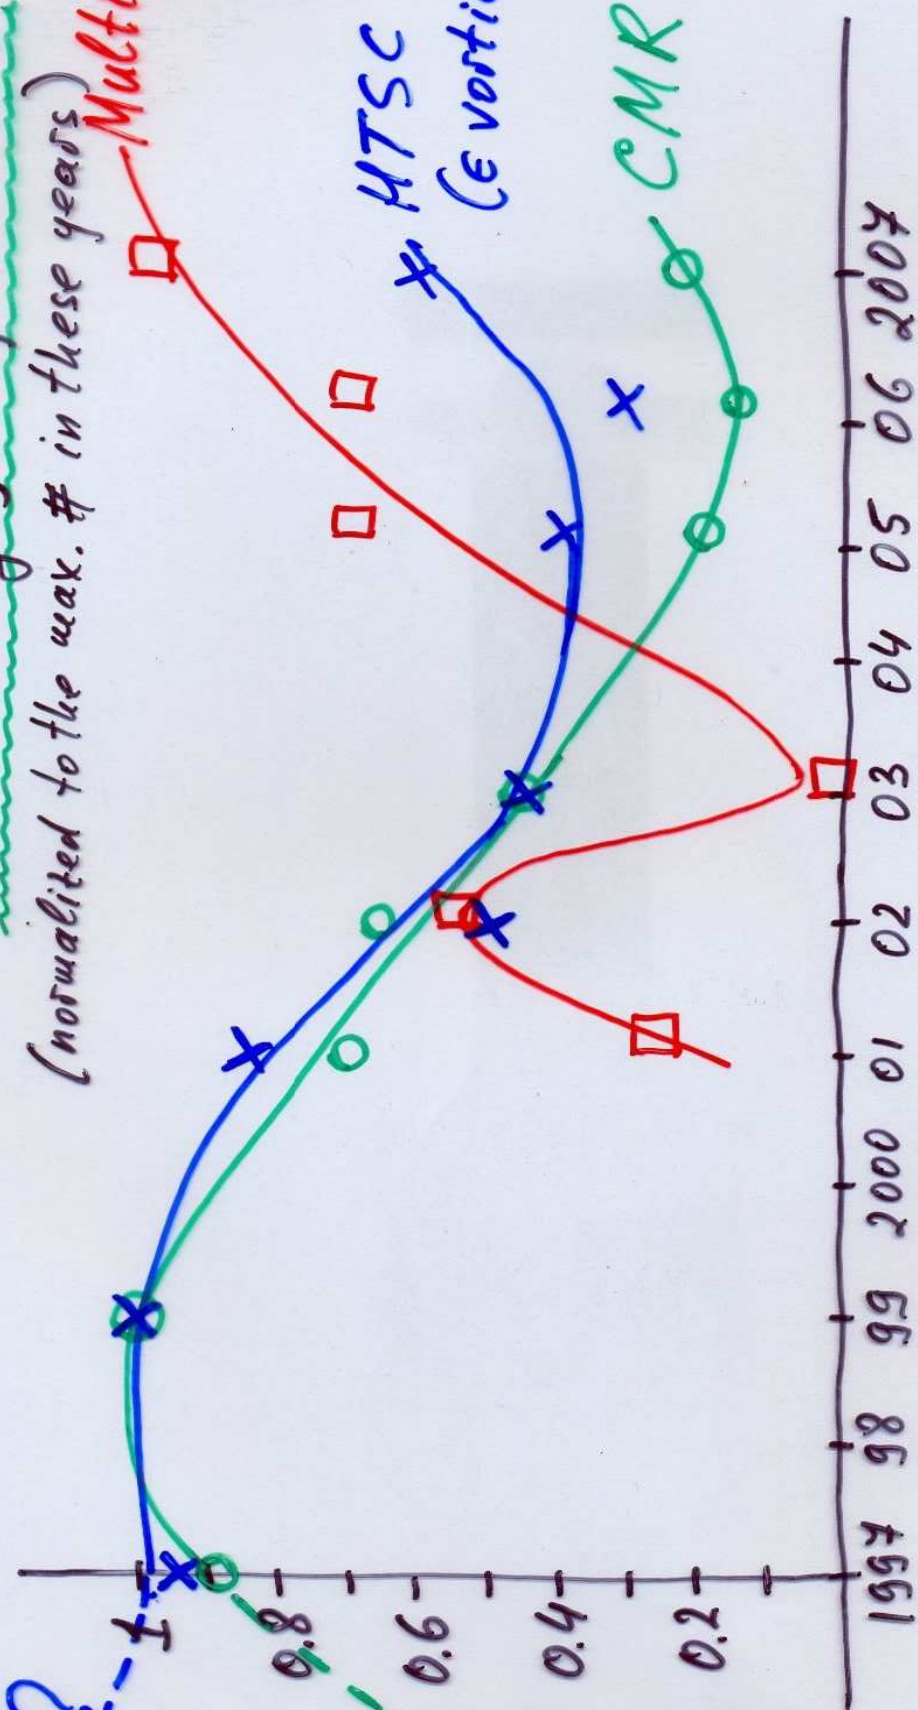 (normalized to the max. # in these years)
Multi
HTSC
(ε vorti
CMR
1
0.8
0.6
0.4
0.2
1997
98
99
2000
01
02
03
04
05
06
2007